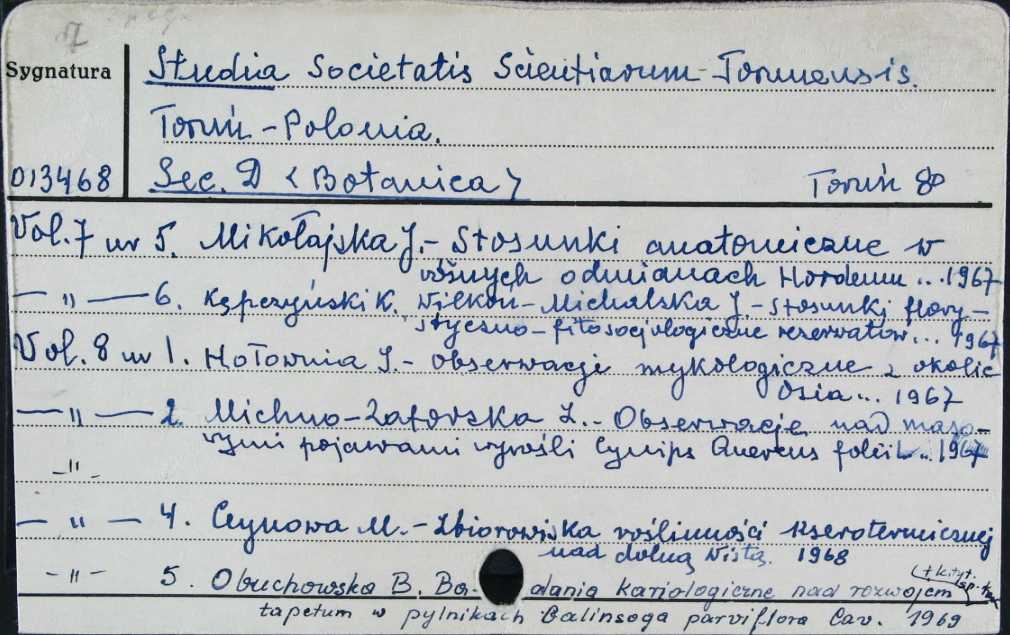 Sygnatura
Studia Societatis Scientiarum Torunensis.
Toruń - Polonia.
013468
Sec. D <Botanica>
Toruń 80
Vol. 7 nr 5. Mikołajska J. - Stosunki anatomiczne w
różnych odmianach Hordeum .. 1967
— " — 6. Kępczyński K. Wilkoń-Michalska J. - Stosunki flory-
styczno-fitosocjologiczne rezerwatów... 1967
Vol. 8 nr 1. Hołownia J. - Obserwacje mykologiczne z okolic
Osia... 1967
— " — 2. Michno-Zatorska Z. - Obserwacje nad maso-
wymi pojawami wyrośli Cynips Quercus folii .. 1967
— " —
— " — 4. Ceynowa M. - Zbiorowiska roślinności kserotermicznej
nad dolną Wisłą. 1968
- " - 5. Obuchowska B. Ba dania kariologiczne nad rozwojem
tapetum w pylnikach Galinsoga parviflora Cav. 1969